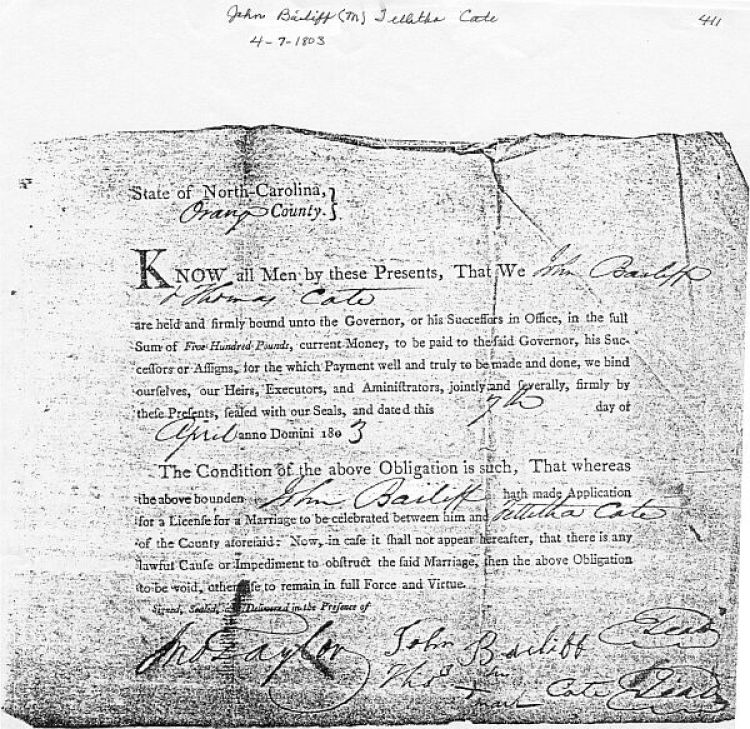 John Bailiff (M) Tellitha Cate
411
4-7-1803
State of North-Carolina,
Orang County.
KNOW all Men by these Presents, That We John Bailiff
& Thomas Cate
are held and firmly bound unto the Governor, or his Succeſſors in Office, in the full
Sum of Five Hundred Pounds, current Money, to be paid to the ſaid Governor, his Suc-
ceſſors or Aſſigns, for the which Payment well and truly to be made and done, we bind
ourſelves, our Heirs, Executors, and Aminiſtrators, jointly and ſeverally, firmly by
theſe Preſents, ſealed with our Seals, and dated this 7th day of
April anno Domini 1803
The Condition of the above Obligation is such, That whereas
the above bounden John Bailiff hath made Application
for a Licenſe for a Marriage to be celebrated between him and Tellitha Cate
of the County aforeſaid: Now, in caſe it ſhall not appear hereafter, that there is any
lawful Cauſe or Impediment to obſtruct the ſaid Marriage, then the above Obligation
to be void, otherwiſe to remain in full Force and Virtue.
Signed, Sealed, and Delivered in the Preſence of
Jno Taylor
John Bailiff Seal
Thos Cate Seal
mark